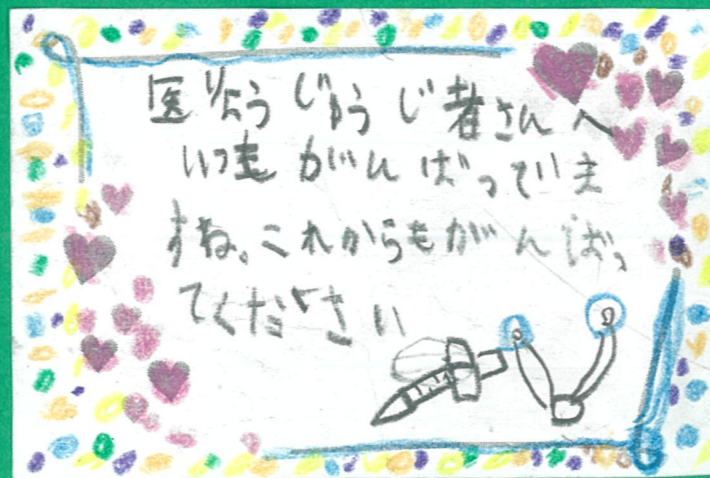 医りょうじゅうじ者さんへ
いつもがんばっていま
すね。これからもがんばっ
てください